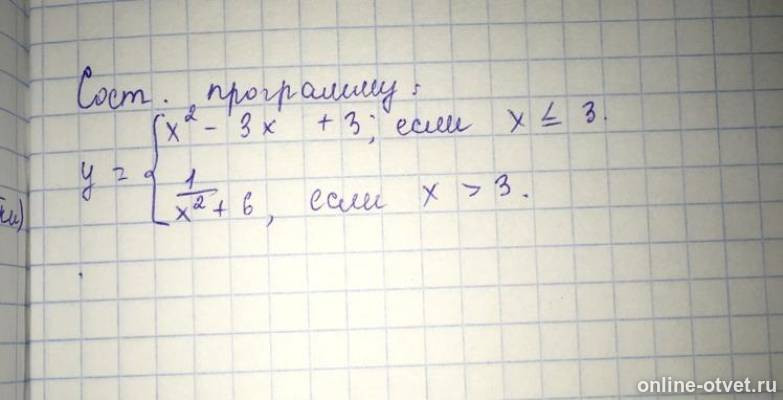 Сост. программу:
y = { x² - 3x + 3, если x ≤ 3.
1/x² + 6, если x > 3.
online-otvet.ru